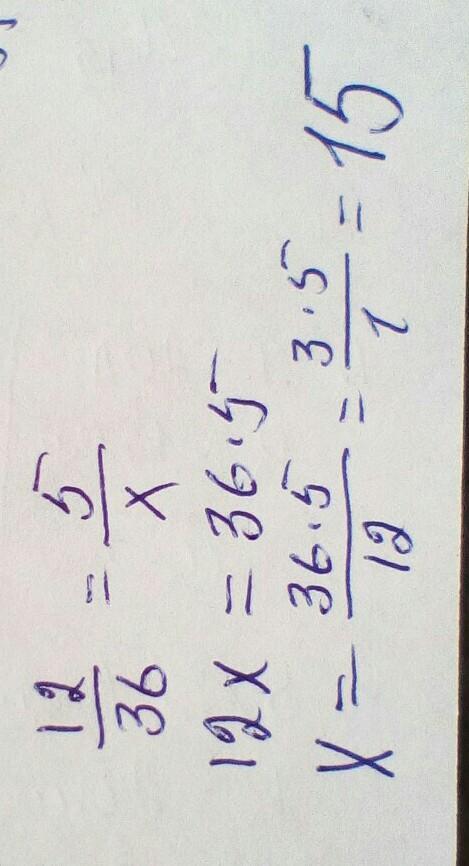 12/36 = 5/x
12x = 36·5
x = 36·5/12 = 3·5/1 = 15